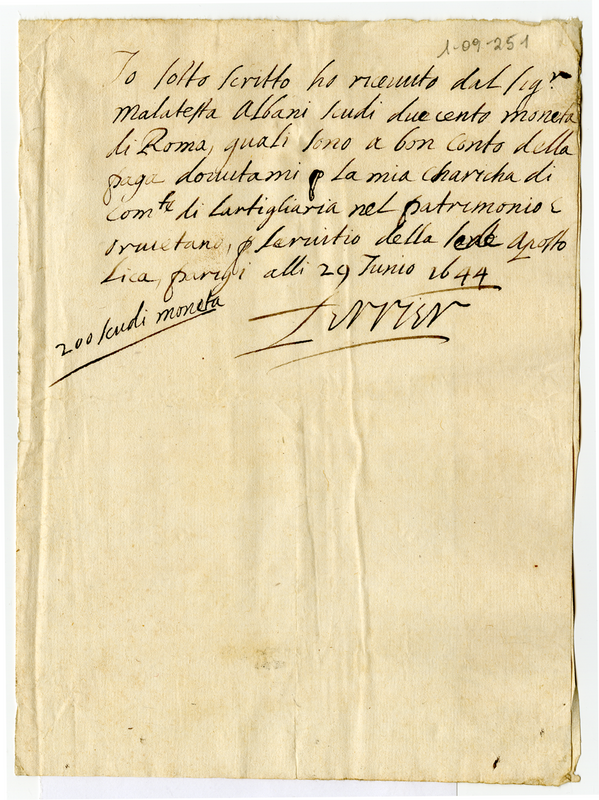 1-09-251
Io sotto scritto ho riceuuto dal sigr
Malatesta Albani scudi duecento moneta
di Roma, quali sono a bon conto della
paga douutami p la mia charicha di
Comte di Lartigliaria nel patrimonio e
oruietano, p seruitio della sede Aposto
Lica, parigi alli 29 Junio 1644
200 scudi moneta